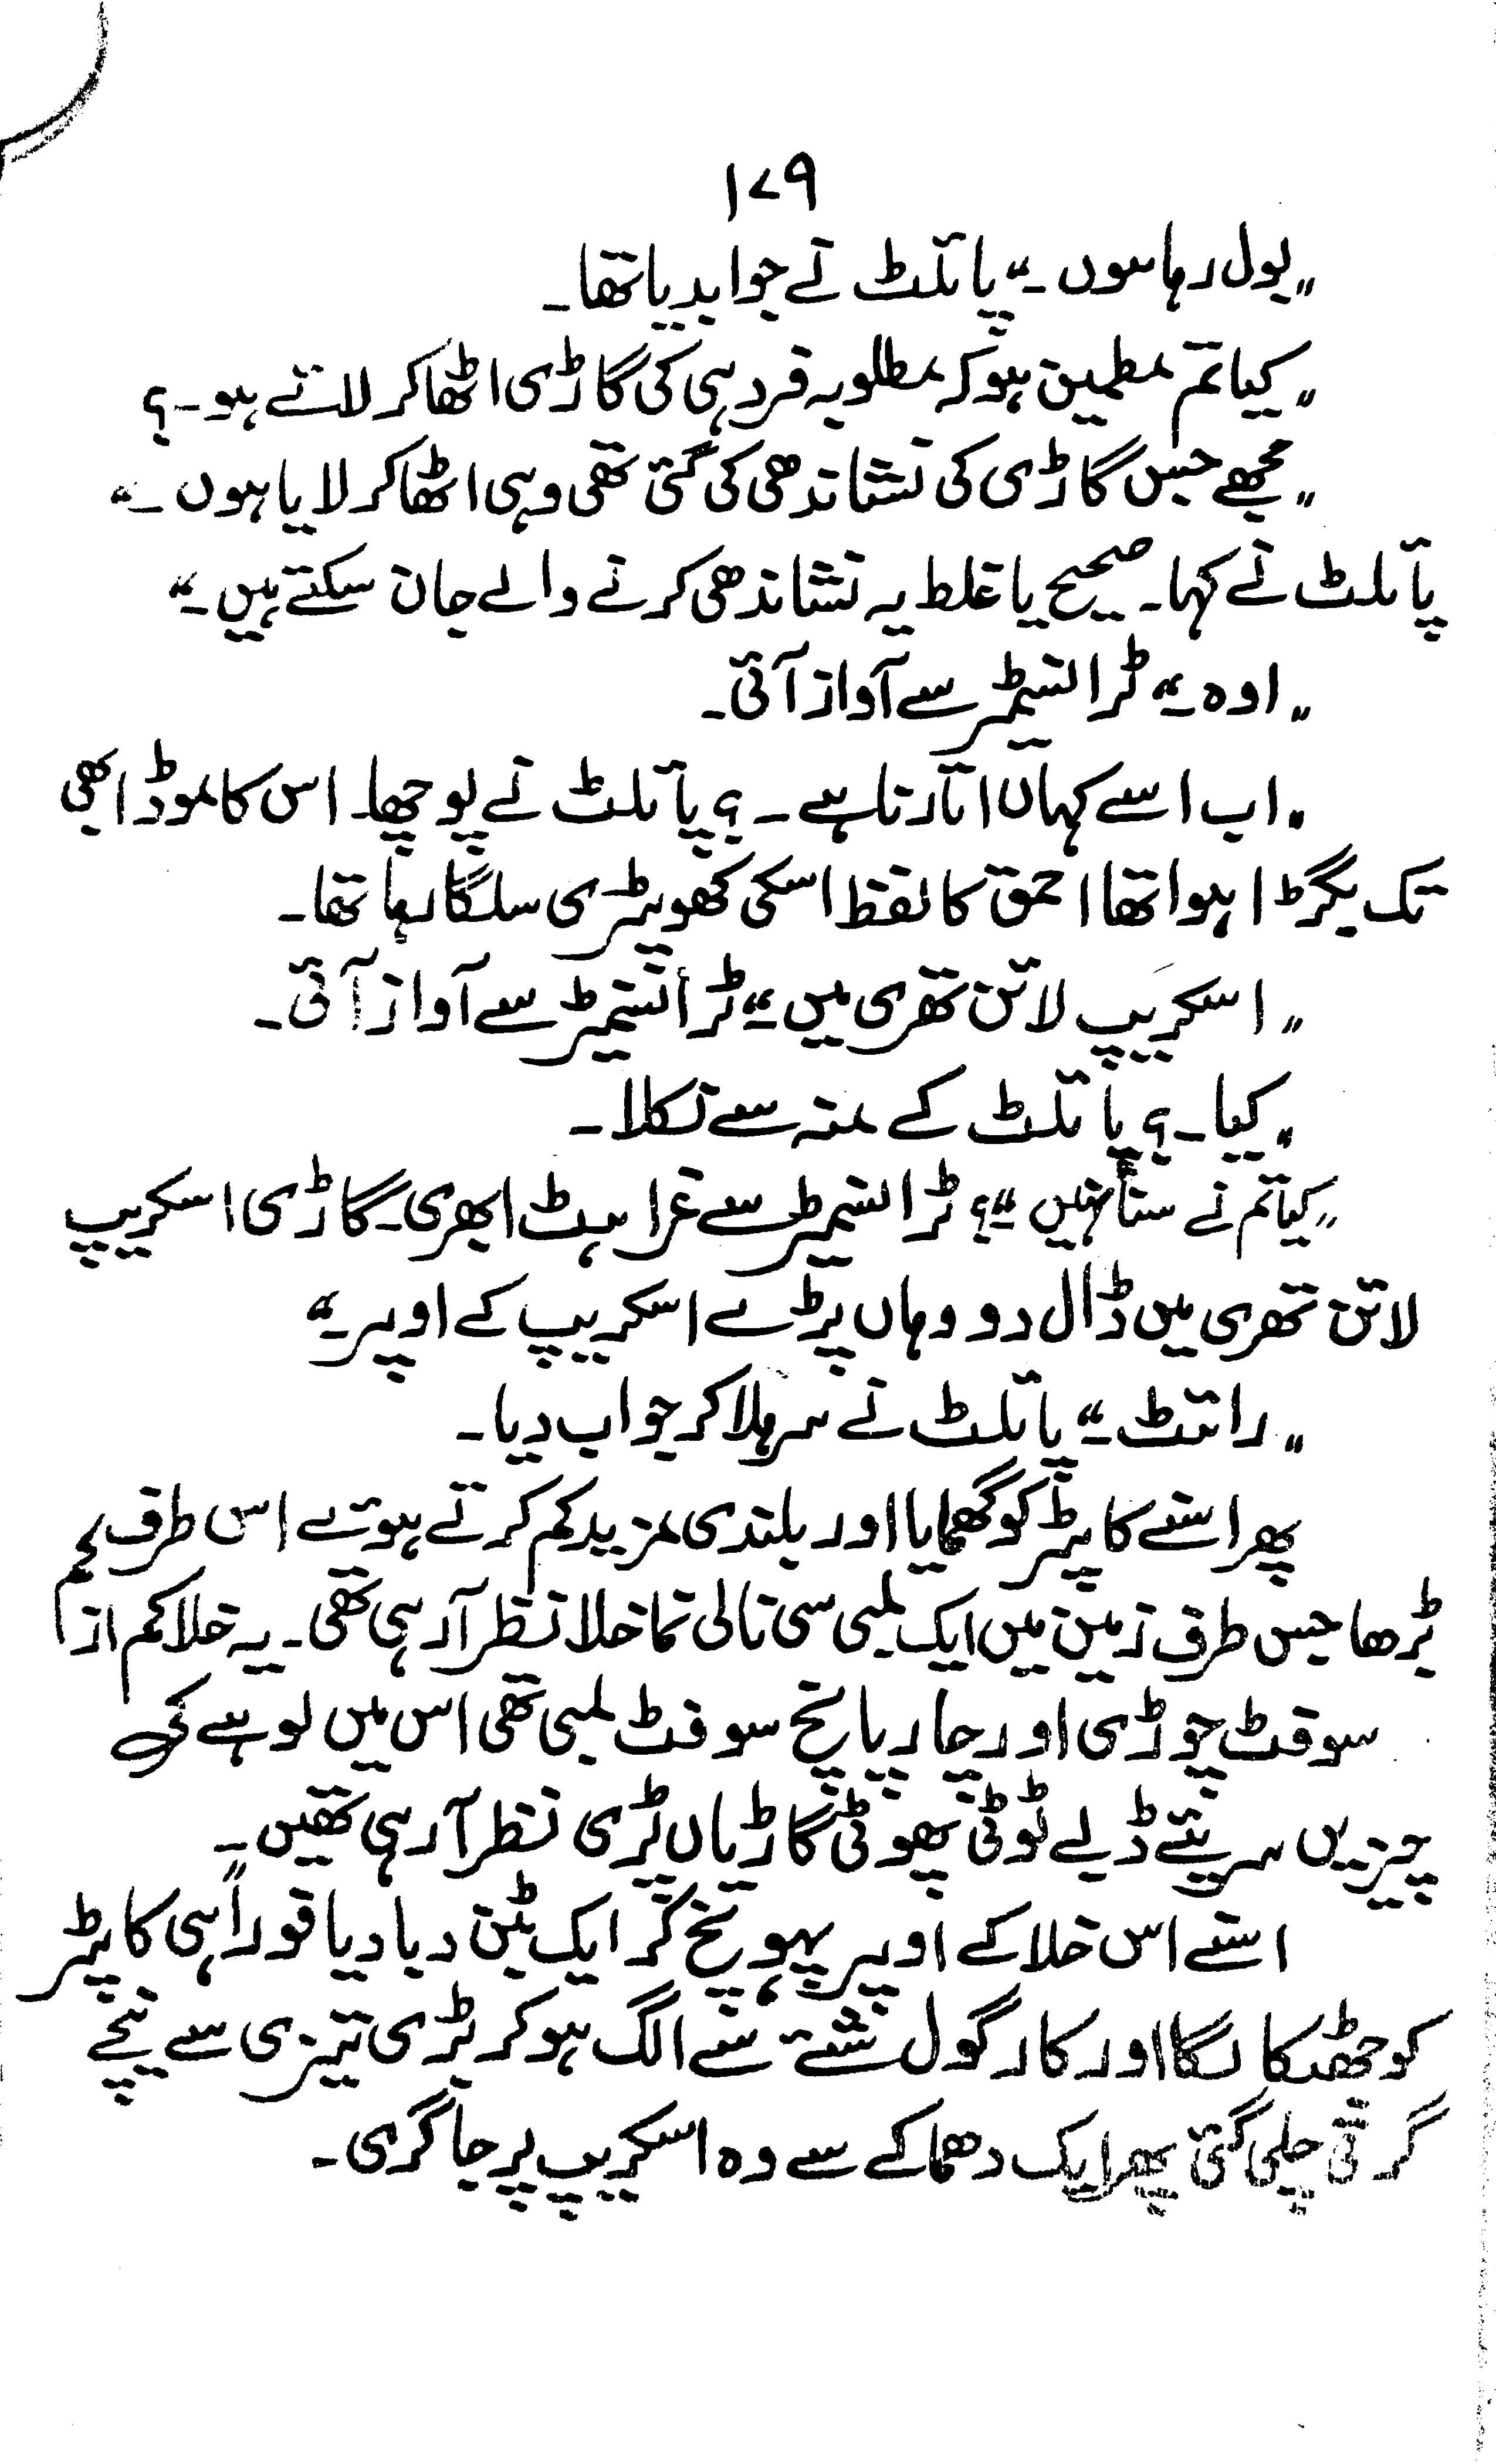 ۱۷۹
"بول رہا ہوں ۔" پائلٹ نے جوابدیا تھا ۔
"کیا تم مطمین ہو کہ مطلوبہ فرد ہی کی گاڑی اٹھا کر لائے ہو ۔؟
"مجھے جس گاڑی کی نشاندھی کی گئی تھی وہی اٹھا کر لایا ہوں ۔"
پائلٹ نے کہا۔ صحیح یا غلط یہ نشاندھی کرنے والے جان سکتے ہیں ۔"
"اوہ ۔" ٹرانسمیٹر سے آواز آئی ۔
"اب اسے کہاں اتارنا ہے ۔ ؟ پائلٹ نے پوچھا۔ اس کا موڈ ابھی
تک بگڑا ہوا تھا احمق کا لفظ اسکی کھوپڑی سلگا رہا تھا ۔
"اسکریپ لائن تھری میں ۔" ٹرانسمیٹر سے آواز آئی ۔
"کیا ۔؟ پائلٹ کے منہ سے نکلا ۔
"کیا تم نے سنا نہیں ۔"؟ ٹرانسمیٹر سے غراہٹ ابھری۔ گاڑی اسکریپ
لائن تھری میں ڈال دو وہاں پڑے اسکریپ کے اوپر ۔"
"رائٹ ۔" پائلٹ نے سر ہلا کر جواب دیا ۔
پھر اسنے کاپٹر کو گھمایا اور بلندی مزید کم کرتے ہوئے اس طرف
بڑھا جس طرف زمین میں ایک لمبی سی نالی نما خلا نظر آ رہی تھی ۔ یہ خلا کم از
سو فٹ چوڑی اور چار پانچ سو فٹ لمبی تھی اس میں لوہے کی
چیزیں سریئے ڈبے ٹوٹی پھوٹی گاڑیاں پڑی نظر آ رہی تھیں ۔
اسنے اس خلا کے اوپر پہونچ کر ایک بٹن دبا دیا فوراً ہی کاپٹر
کو جھٹکا لگا اور کار گول شئے سے الگ ہو کر بڑی تیزی سے نیچے
گرتی چلی گئی پھر ایک دھماکے سے وہ اسکریپ پر جا گری ۔